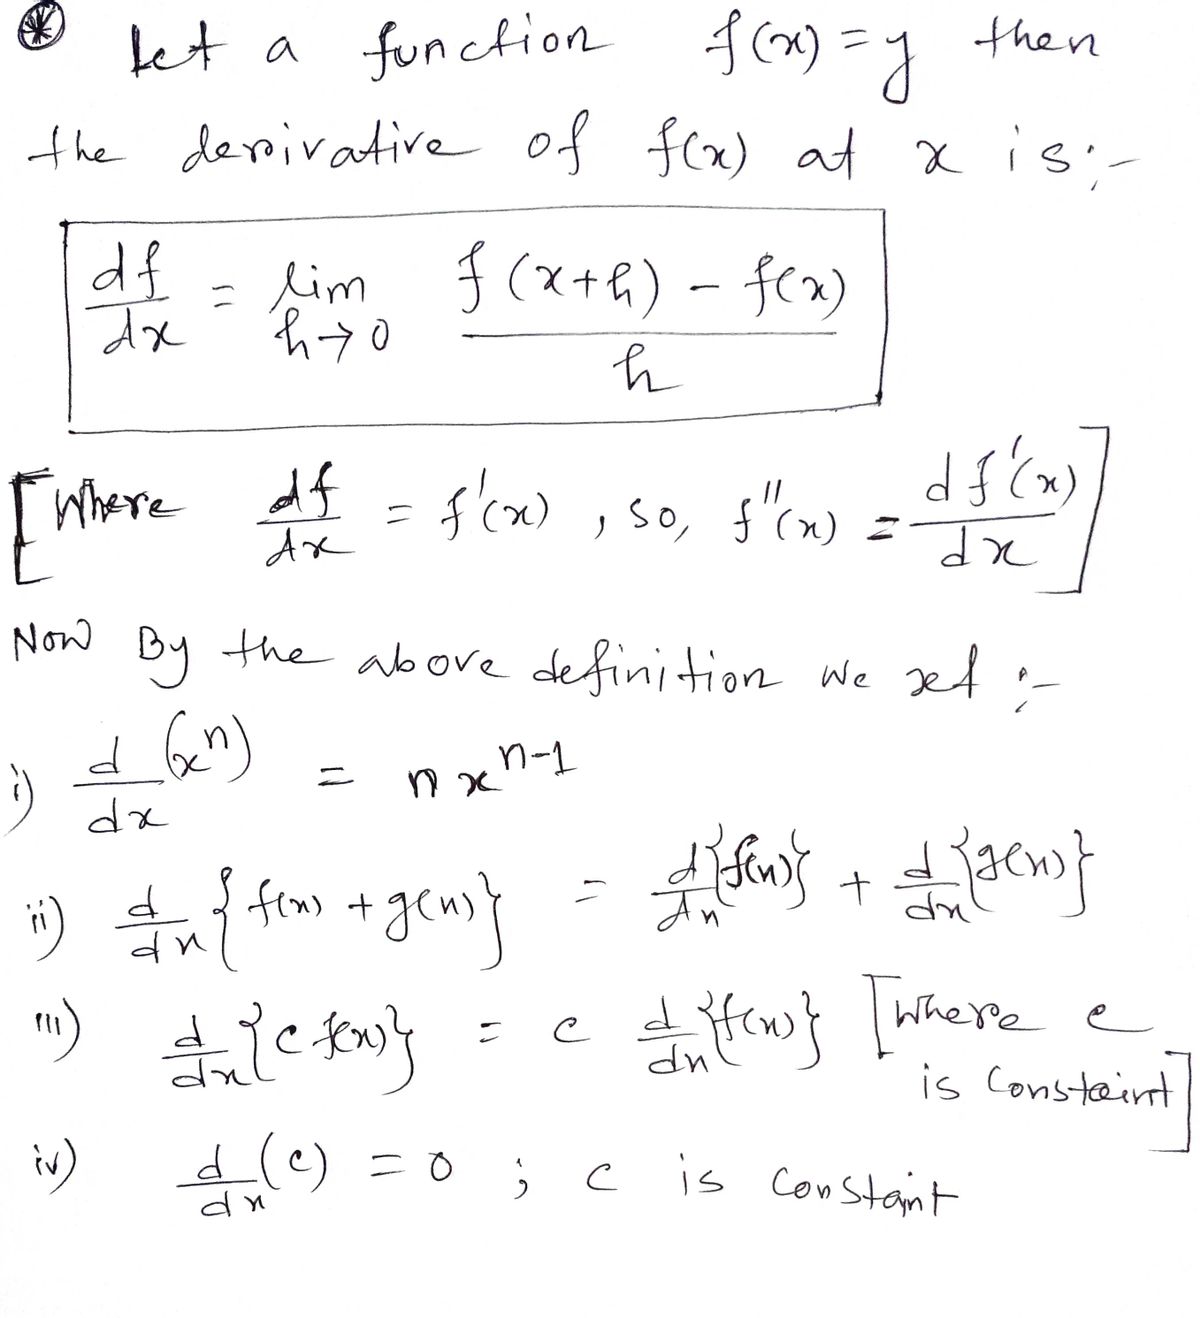 ⊛ Let a function f(x) = y then
the derivative of f(x) at x is:-
df/dx = lim h→0 f(x+h) - f(x) / h
[Where df/dx = f'(x), so, f''(x) = df'(x)/dx]
Now By the above definition we get :-
i) d/dx (xⁿ) = n xⁿ⁻¹
ii) d/dx {f(x) + g(x)} = d/dx {f(x)} + d/dx {g(x)}
iii) d/dx {c f(x)} = c d/dx {f(x)} [Where c
is Constaint]
iv) d/dx (c) = 0 ; c is Constaint